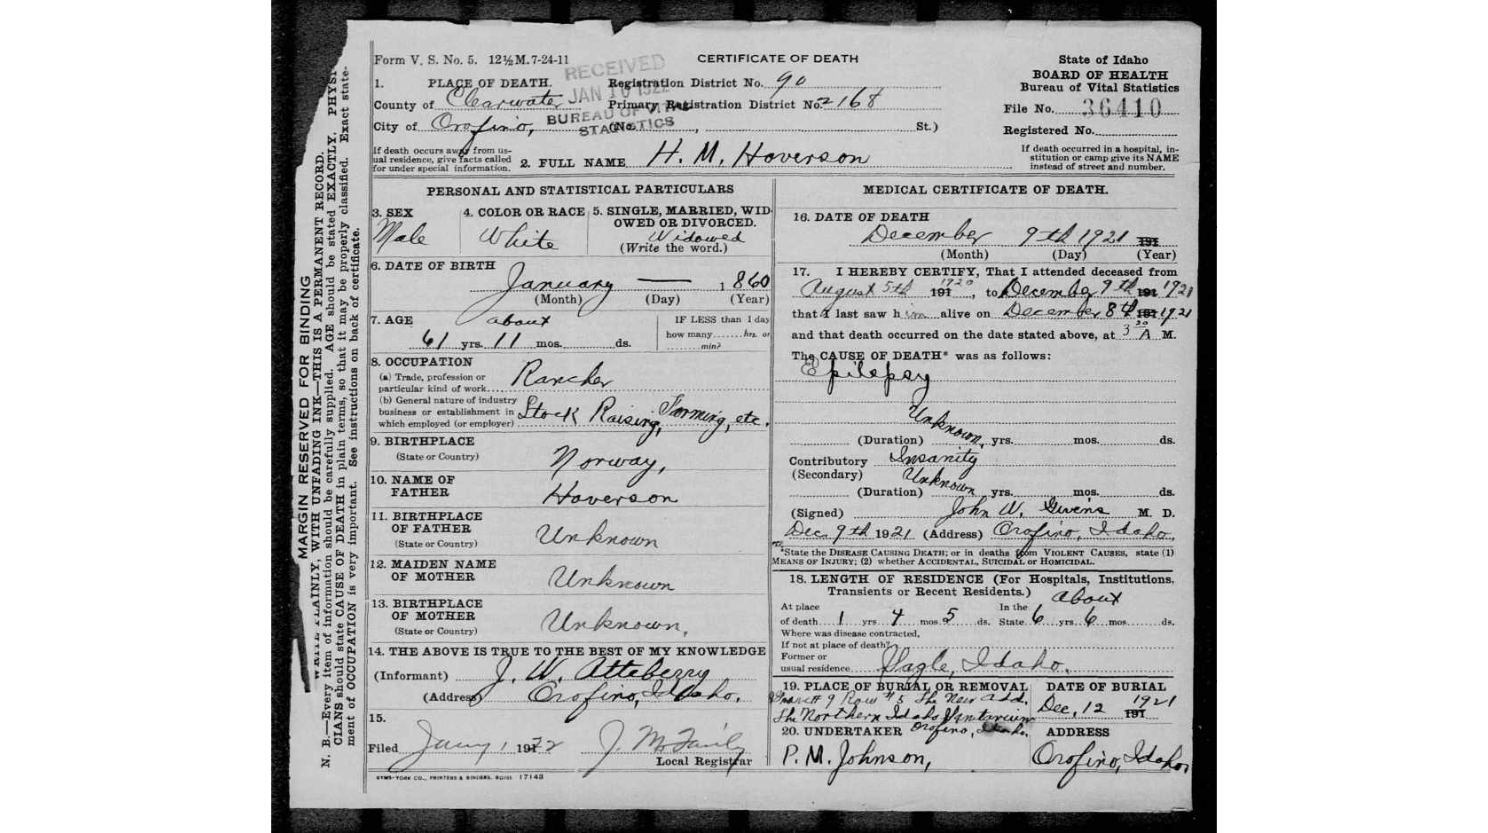 MARGIN RESERVED FOR BINDING
WRITE PLAINLY, WITH UNFADING INK—THIS IS A PERMANENT RECORD.
N. B.—Every item of information should be carefully supplied. AGE should be stated EXACTLY. PHYSI-
CIANS should state CAUSE OF DEATH in plain terms, so that it may be properly classified. Exact state-
ment of OCCUPATION is very important. See instructions on back of certificate.
Form V. S. No. 5. 12½M.7-24-11
CERTIFICATE OF DEATH
State of Idaho
BOARD OF HEALTH
Bureau of Vital Statistics
File No. 36410
Registered No.
RECEIVED
JAN 10 1922
BUREAU OF VITAL
STATISTICS
1. PLACE OF DEATH.
Registration District No. 90
County of Clearwater
Primary Registration District No. 2168
City of Orofino, (No. , St.)
If death occurs away from us-
ual residence, give facts called
for under special information.
2. FULL NAME H. M. Hoverson
If death occurred in a hospital, in-
stitution or camp give its NAME
instead of street and number.
PERSONAL AND STATISTICAL PARTICULARS
3. SEX
Male
4. COLOR OR RACE
White
5. SINGLE, MARRIED, WID-
OWED OR DIVORCED.
Widowed
(Write the word.)
6. DATE OF BIRTH
January — 1860
(Month) (Day) (Year)
7. AGE about
61 yrs. 11 mos. ds.
IF LESS than 1 day
how many hrs. or
min?
8. OCCUPATION
(a) Trade, profession or
particular kind of work Rancher
(b) General nature of industry
business or establishment in
which employed (or employer) Stock Raising, Farming, etc.
9. BIRTHPLACE
(State or Country) Norway,
10. NAME OF
FATHER Hoverson
11. BIRTHPLACE
OF FATHER
(State or Country) Unknown
12. MAIDEN NAME
OF MOTHER Unknown
13. BIRTHPLACE
OF MOTHER
(State or Country) Unknown,
14. THE ABOVE IS TRUE TO THE BEST OF MY KNOWLEDGE
(Informant) J. W. Atteberry
(Address) Orofino, Idaho.
15.
Filed Jany 1 1922 J. M. Fairly
Local Registrar
SYMS-YORK CO., PRINTERS & BINDERS, BOISE 17143
MEDICAL CERTIFICATE OF DEATH.
16. DATE OF DEATH
December 9th 1921 191
(Month) (Day) (Year)
17. I HEREBY CERTIFY, That I attended deceased from
August 5th 1920 191 , to December 9th 191 1921
that I last saw him alive on December 8th 191 1921
and that death occurred on the date stated above, at 3 30 A M.
The CAUSE OF DEATH* was as follows:
Epilepsy
(Duration) Unknown, yrs. mos. ds.
Contributory Insanity
(Secondary)
(Duration) Unknown yrs. mos. ds.
(Signed) John W. Givens M. D.
Dec. 9th 1921 (Address) Orofino, Idaho.
*State the DISEASE CAUSING DEATH; or in deaths from VIOLENT CAUSES, state (1)
MEANS OF INJURY; (2) whether ACCIDENTAL, SUICIDAL or HOMICIDAL.
18. LENGTH OF RESIDENCE (For Hospitals, Institutions,
Transients or Recent Residents.) about
At place In the
of death 1 yrs 4 mos 5 ds. State 6 yrs 6 mos ds.
Where was disease contracted,
If not at place of death?
Former or
usual residence Eagle, Idaho.
19. PLACE OF BURIAL OR REMOVAL
9 Row #5 The New Add.
The Northern Idaho Sanitarium
Orofino, Idaho.
DATE OF BURIAL
Dec, 12 1921 191
20. UNDERTAKER
P. M. Johnson,
ADDRESS
Orofino, Idaho,